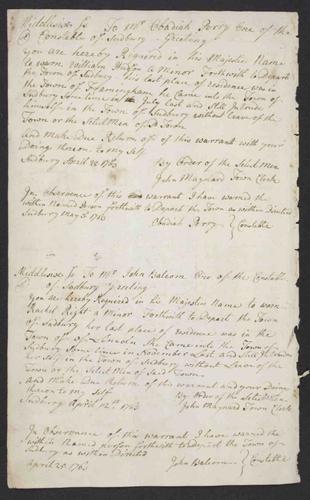 Middlesex Ss To Mr Obadiah Perry One of the
Constable of Sudbury Greeting
you are hereby Required in his Majestis Name
to warn William a Minor Forthwith to Depart
the Town of Sudbury his last place of residence was in
the Town of Framingham he Came into the Town of
Sudbury some time in July Last and Still Intends
himself in the Town of Sudbury without Leave of the
Town or the Select Men of Sd Town
and make Due Return of this warrant with your
Doing thereon to my Self
Sudbury April 1763 By Order of the Select Men
John Maynard Town Clerk
In Observance of this warrant I have warned the
within Named Person forthwith to Depart the Town as within Directed
Sudbury May 1763
Obadiah Perry Constable
Middlesex Ss To Mr John Balcom One of the Constable
of Sudbury Greeting
you are hereby Required in his Majestis Name to warn
Rachel Right a Minor Forthwith to Depart the Town
of Sudbury her last place of residence was in the
Town of Lincoln She Came into the Town of
Sudbury some time in November Last and Still Intends
her Self in the Town of Sudbury without Leave of the
Town or the Select Men of Said Town
and Make Due Return of this warrant and your Doing
thereon to my Self By Order of the Select Men
Sudbury April 12th 1763 John Maynard Town Clerk
In Observance of this warrant I have warned the
within Named person forthwith to Depart the Town of
Sudbury as within Directed
April 25 1763 John Balcom Constable